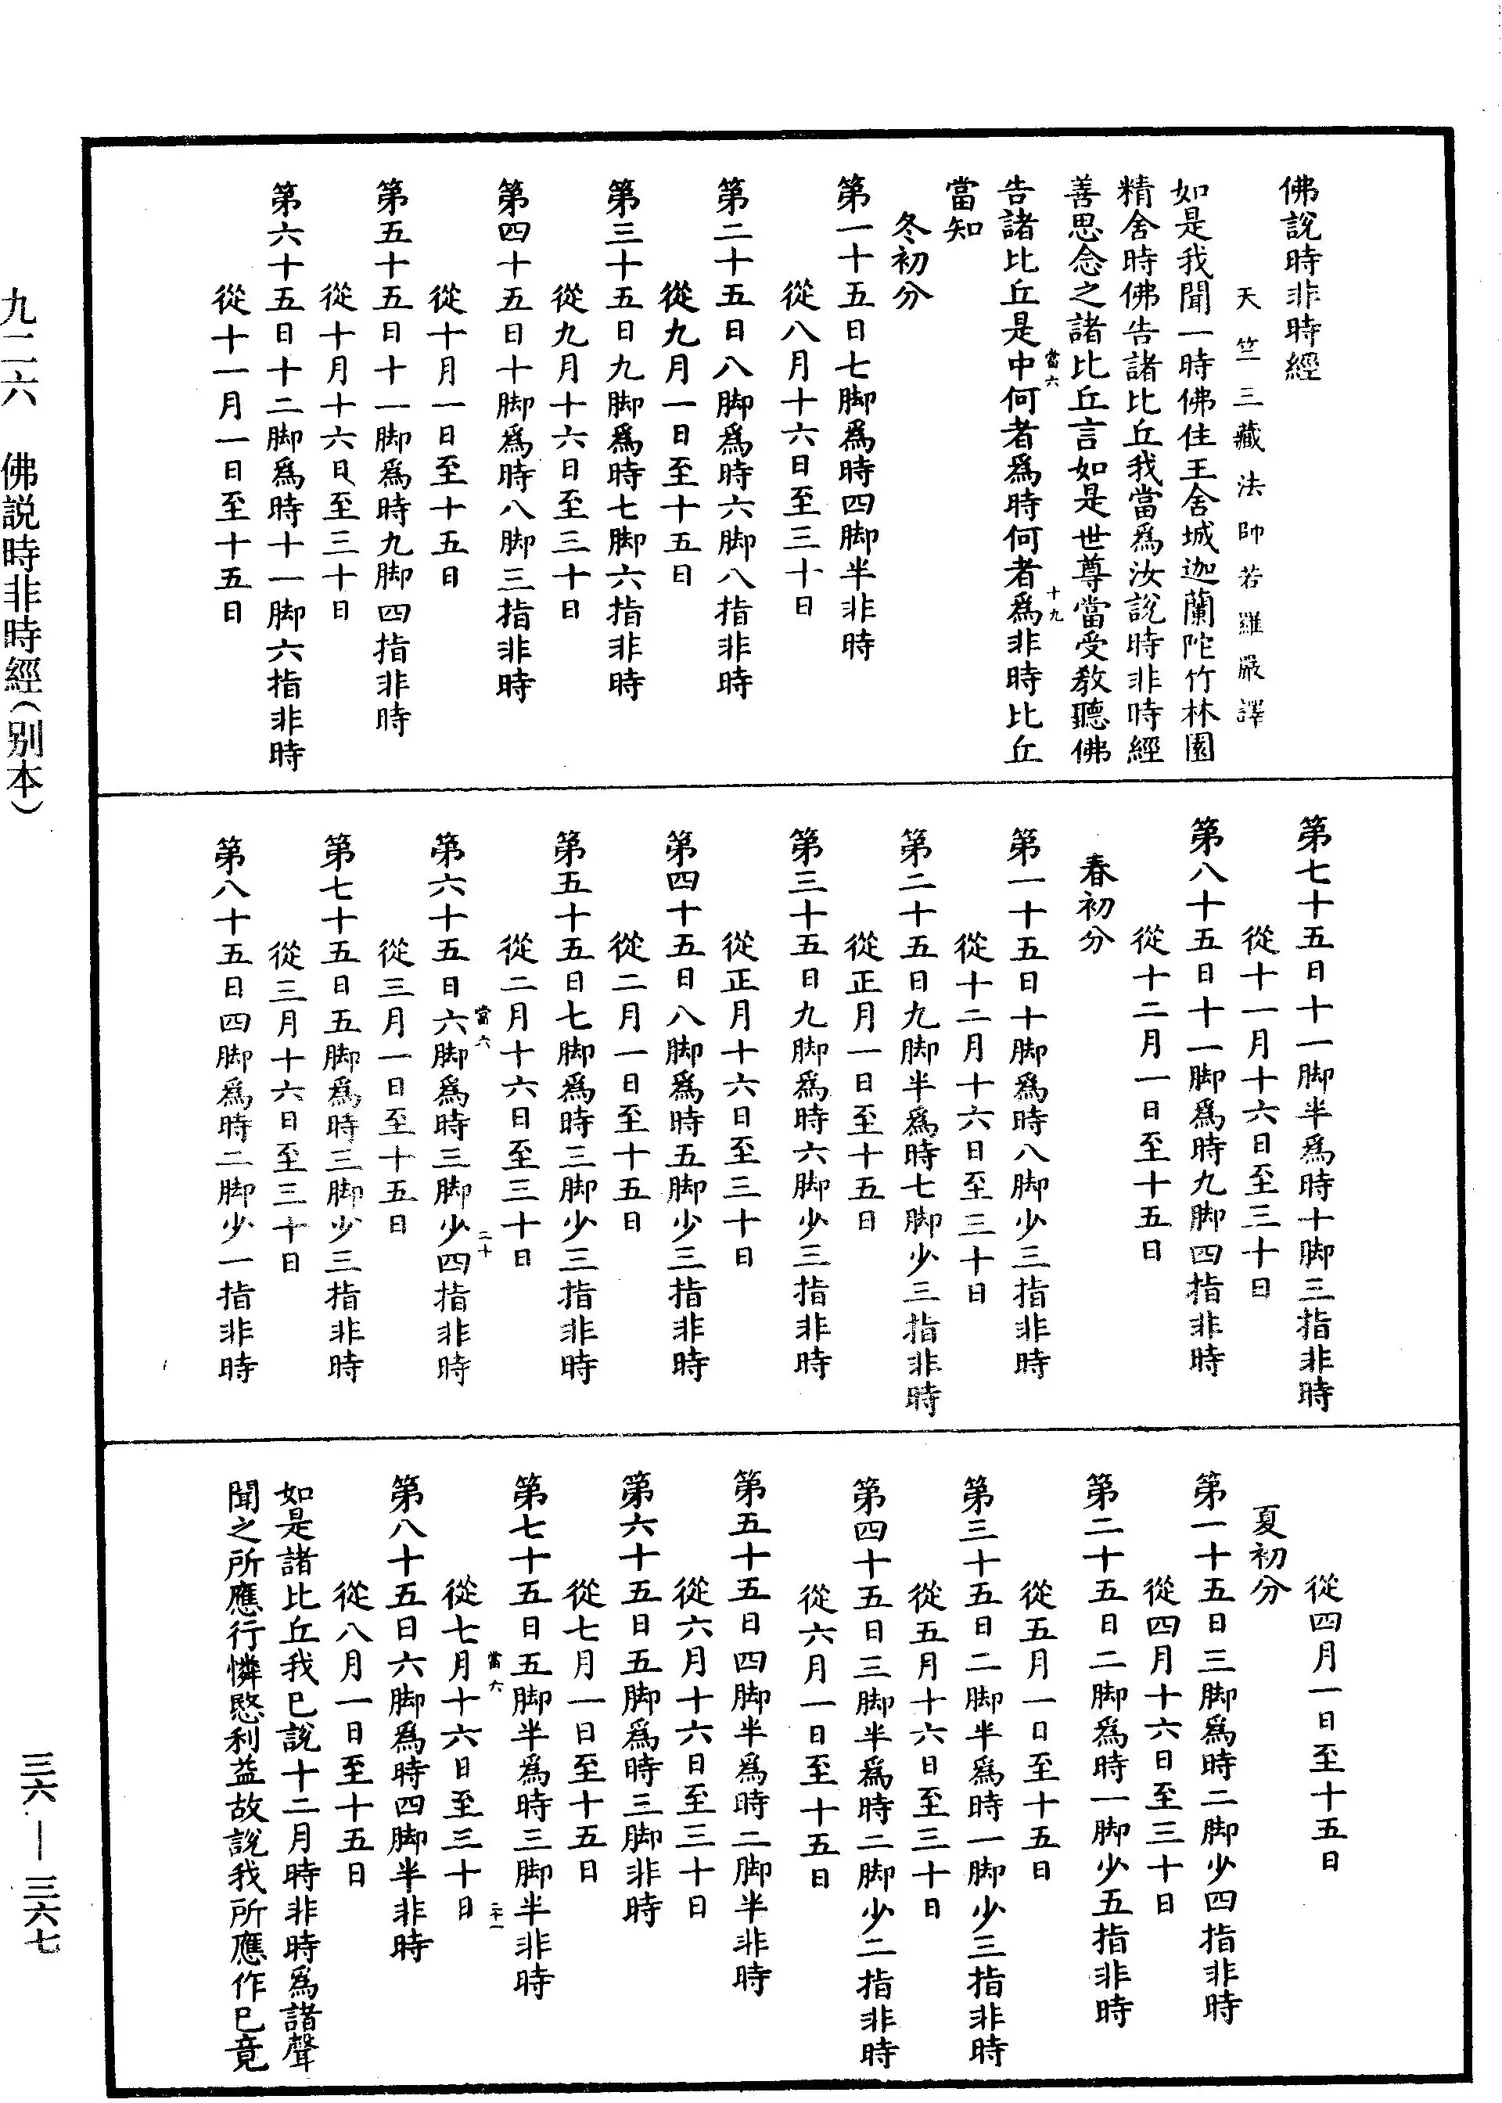 佛說時非時經
天竺三藏法師若羅嚴譯
如是我聞一時佛住王舍城迦蘭陀竹林園
精舍時佛告諸比丘我當爲汝說時非時經
善思念之諸比丘言如是世尊當受教聽佛
當六
十九
告諸比丘是中何者爲時何者爲非時比丘
當知
冬初分
第一十五日七脚爲時四脚半非時
從八月十六日至三十日
第二十五日八脚爲時六脚八指非時
從九月一日至十五日
第三十五日九脚爲時七脚六指非時
從九月十六日至三十日
第四十五日十脚爲時八脚三指非時
從十月一日至十五日
第五十五日十一脚爲時九脚四指非時
從十月十六日至三十日
第六十五日十二脚爲時十一脚六指非時
從十一月一日至十五日
第七十五日十一脚半爲時十脚三指非時
從十一月十六日至三十日
第八十五日十一脚爲時九脚四指非時
從十二月一日至十五日
春初分
第一十五日十脚爲時八脚少三指非時
從十二月十六日至三十日
第二十五日九脚半爲時七脚少三指非時
從正月一日至十五日
第三十五日九脚爲時六脚少三指非時
從正月十六日至三十日
第四十五日八脚爲時五脚少三指非時
從二月一日至十五日
第五十五日七脚爲時三脚少三指非時
從二月十六日至三十日
當六
二十
第六十五日六脚爲時三脚少四指非時
從三月一日至十五日
第七十五日五脚爲時三脚少三指非時
從三月十六日至三十日
第八十五日四脚爲時二脚少一指非時
從四月一日至十五日
夏初分
第一十五日三脚爲時二脚少四指非時
從四月十六日至三十日
第二十五日二脚爲時一脚少五指非時
從五月一日至十五日
第三十五日二脚半爲時一脚少三指非時
從五月十六日至三十日
第四十五日三脚半爲時二脚少二指非時
從六月一日至十五日
第五十五日四脚半爲時二脚半非時
從六月十六日至三十日
第六十五日五脚爲時三脚非時
從七月一日至十五日
第七十五日五脚半爲時三脚半非時
當六
二十一
從七月十六日至三十日
第八十五日六脚爲時四脚半非時
從八月一日至十五日
如是諸比丘我已說十二月時非時爲諸聲
聞之所應行憐愍利益故說我所應作已竟
九二六　佛説時非時經（别本）
三六—三六七